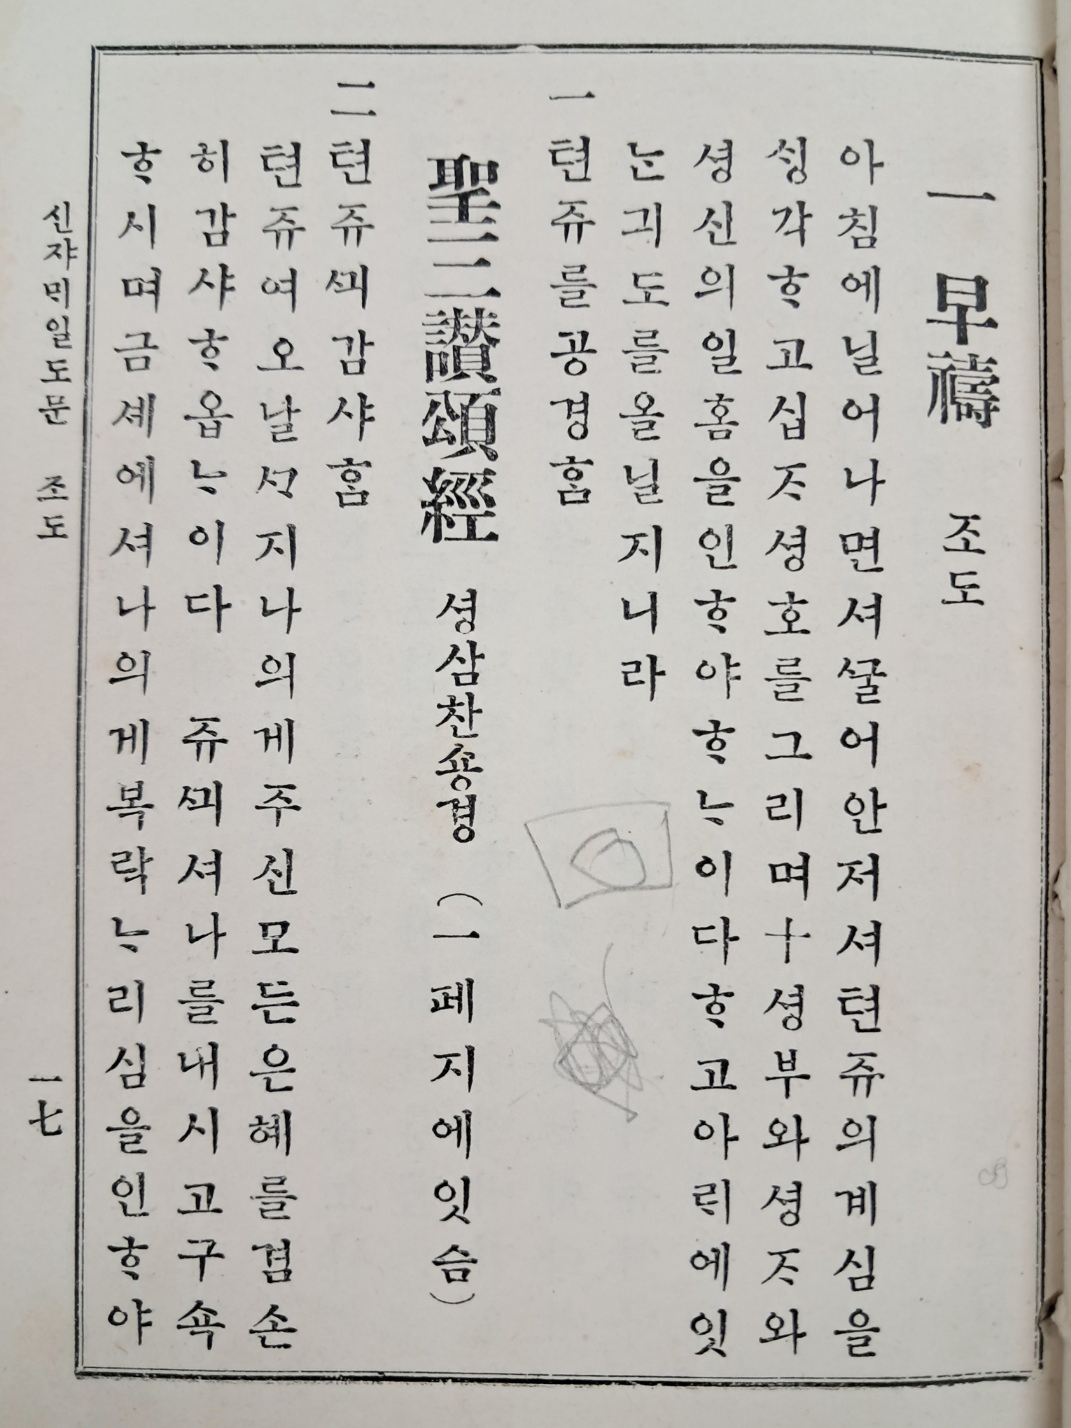 一 早禱 조도
아침에닐어나면셔ᄭᅮᆯ어안저셔텬쥬의계심을
ᄉᆡᆼ각ᄒᆞ고십ᄌᆞ셩호를그리며十셩부와셩ᄌᆞ와
셩신의일홈을인ᄒᆞ야ᄒᆞᄂᆞ이다ᄒᆞ고아ᄅᆡ에잇
ᄂᆞᆫ긔도를올닐지니라
一 텬쥬를공경홈
聖三讚頌經 셩삼찬숑경 (一페지에잇슴)
二 텬쥬ᄭᅴ감샤홈
텬쥬여오날ᄭᆞ지나의게주신모든은혜를겸손
히감샤ᄒᆞ옵ᄂᆞ이다 쥬ᄭᅴ셔나를내시고구쇽
ᄒᆞ시며금셰에셔나의게복락ᄂᆞ리심을인ᄒᆞ야
신쟈ᄆᆡ일도문 조도
一七